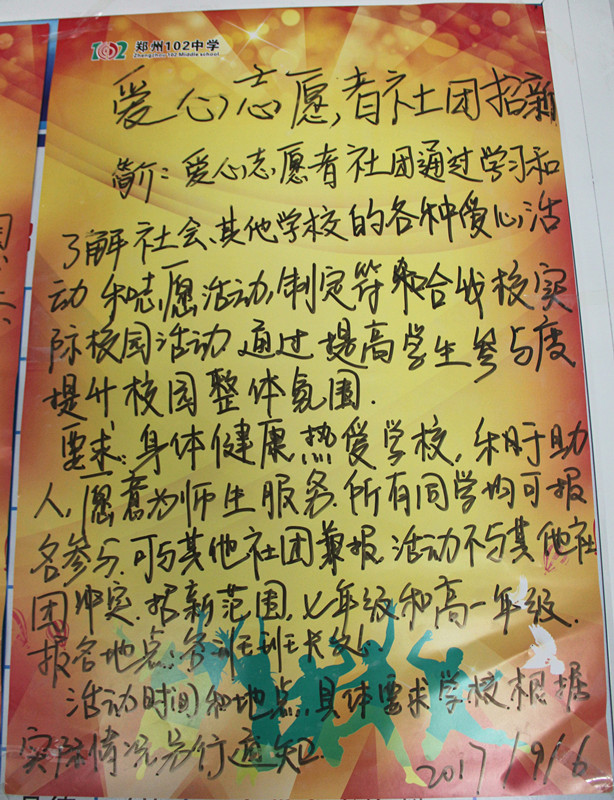 102 郑州102中学
Zhengzhou 102 Middle school
爱心志愿者社团招新
简介：爱心志愿者社团通过学习和
了解社会、其他学校的各种爱心活
动和志愿活动，制定符合我校实
际校园活动 通过提高学生参与度
提升校园整体氛围.
要求：身体健康 热爱学校，乐于助
人，愿意为师生服务.所有同学均可报
名参与，可与其他社团兼报 活动不与其他社
团冲突.招新范围，七年级和高一年级.
报名地点：各班班长处.
活动时间和地点，具体要求学校根据
实际情况另行通知.
2017/9/6